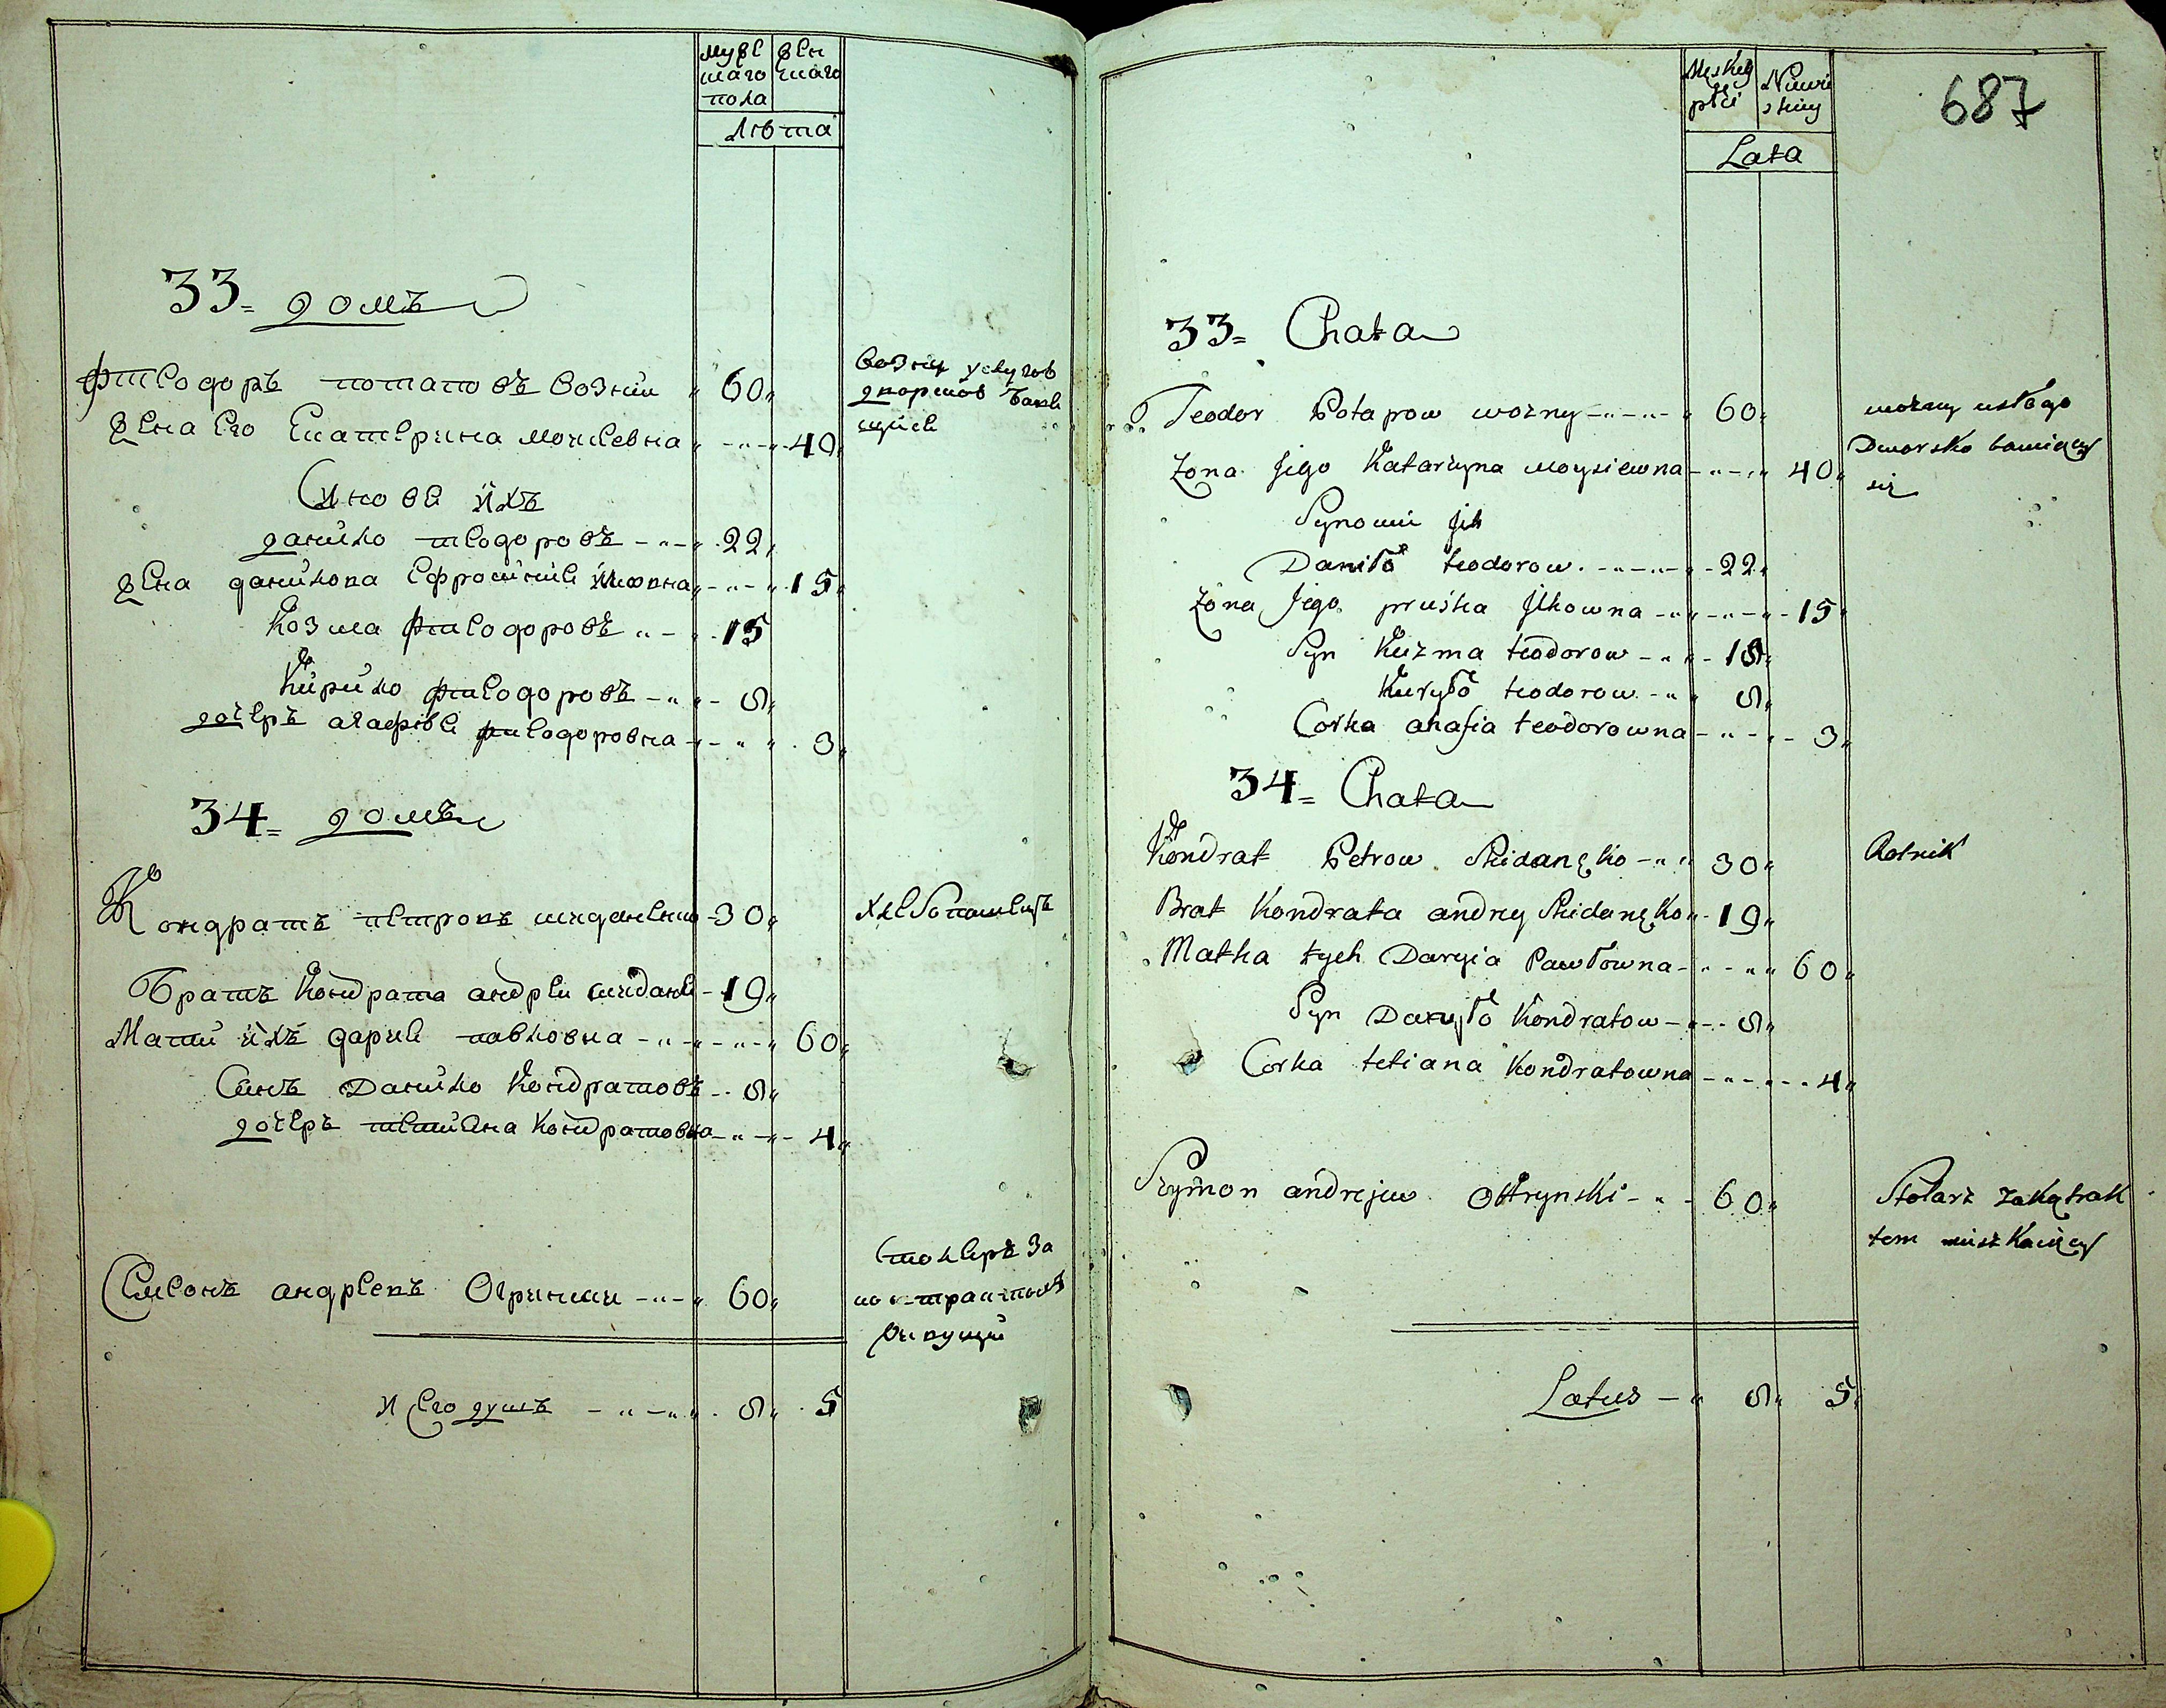 муже
шаго
пола
жен
шаго
лѣта
33 = домъ
Ѳтеодоръ потаповъ возни „ 60 „
жена его Екатерина моисевна „ - „ - „ 40 „
возни услугов
дворшов бави
щийсе
Синове ихъ
данило теодоровъ - „ - „ 22 „
жена данилова Ефросиние Илковна „ - „ - „ 15 „
Козма фтеодоровъ „ - „ 15
Кирило фтеодоровъ - „ - 8 „
дочеръ агафие фтеодоровна - „ - „ 3 „
34 = домъ
Кондратъ петровъ шиданенко - 30 „
хлебопашецъ
Братъ Кондрата андреи шидане - 19 „
Мати ихъ дарие павловна - „ - „ - „ 60 „
Синъ Данило Кондратовъ - 8 „
дочеръ тетиана Кондратовна - „ - „ 4 „
Симеонъ андреевъ Огрински - „ - „ 60 „
столеръ за
контрактомъ
живущи
и Его душъ - „ - „ 8 „ 5
687
Męskey
płci
Niewie
skiey
Lata
33 = Chata
Teodor Potapow wozny - „ - „ 60 „
wozny usługo
Dworsko bawiący
się
Zona Jego Katarzyna moysiewna - „ - „ 40 „
Synowie Jch
Daniło teodorow - „ - „ 22 „
Zona Jego pruśka Jlkowna - „ - „ - 15 „
Syn Kuzma teodorow - „ - 15 „
Kuryło teodorow - „ 8 „
Corka ahafia teodorowna - „ - „ 3 „
34 = Chata
Kondrat Petrow Shidanęko - „ 30 „
Rolnik
Brat Kondrata andrey Shidanęko „ 19 „
Matka tych Daryia Pawłowna - „ - „ 60 „
Syn Danyło Kondratow - „ - 8 „
Corka tetiana Kondratowna - „ - „ 4 „
Szymon andrejew Ohrynski - „ - 60 „
Stolarz za kątrak
tem mieszkaiący
Latus - „ 8 „ 5 „